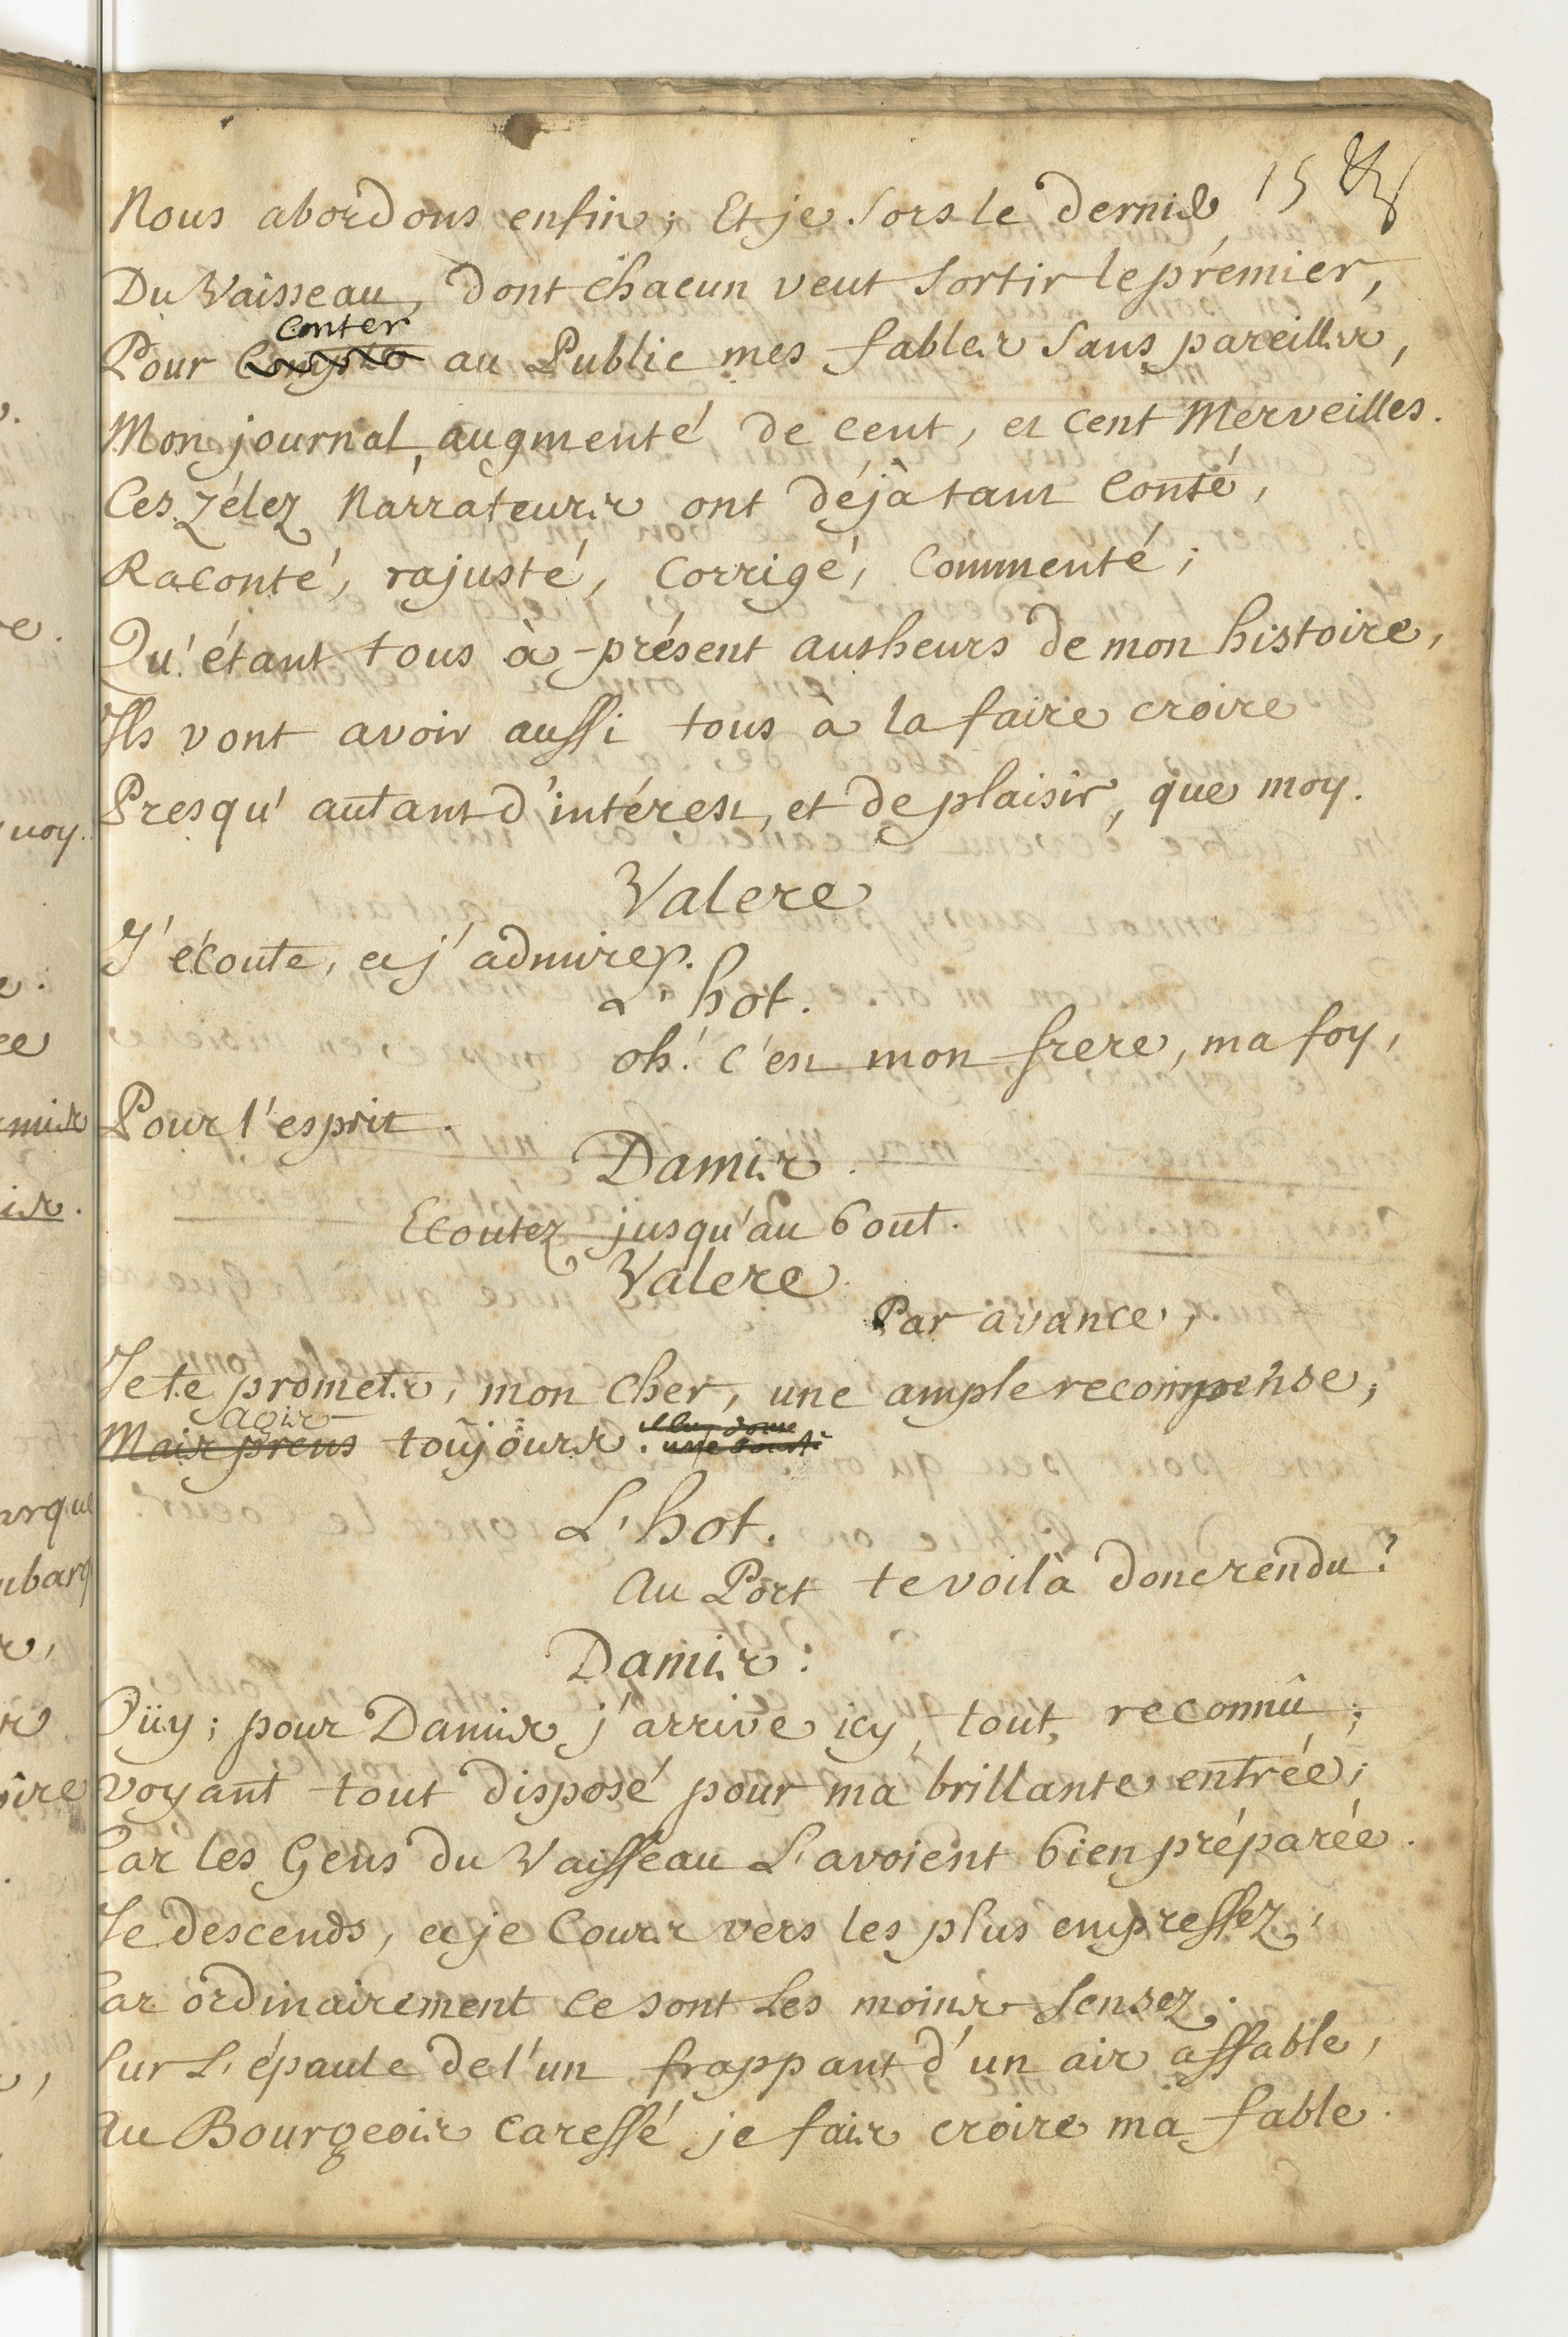 15
Nous abordons enfin; Et je sors le dernier,
Du Vaisseau, dont chacun veut sortir le prémier,
Conter
Pour au Public mes fables sans pareilles,
Mon journal, augmenté de cent, et cent Merveilles.
Ces zélez Narrateurs ont déjà tant conté,
Raconté, rajusté, corrigé, commenté;
Qu'étant tous à-présent autheurs de mon histoire,
Ils vont avoir aussi tous à la faire croire
Presqu'autant d'intérest, et de plaisir, que moy.
Valere
J'écoute, et j'admire.
L'hot.
oh! c'est mon frere, ma foy,
Pour l'esprit.
Damis.
Ecoutez jusqu'au bout.
Valere
Par avance,
Je te promets, mon cher, une ample recompense;
agis
Mais prens toûjours.
L'hot.
Au Port te voilà donc rendu?
Damis:
Oüy; pour Damis j'arrive icy, tout, reconnû;
voyant tout disposé pour ma brillante entrée;
Car les Gens du Vaisseau L'avoient bien préparée.
Je descends, et je cours vers les plus empressez,
Car ordinairement ce sont Les moins sensez.
Sur L'épaule de l'un frappant d'un air affable,
Au Bourgeois caressé je fais croire ma fable.